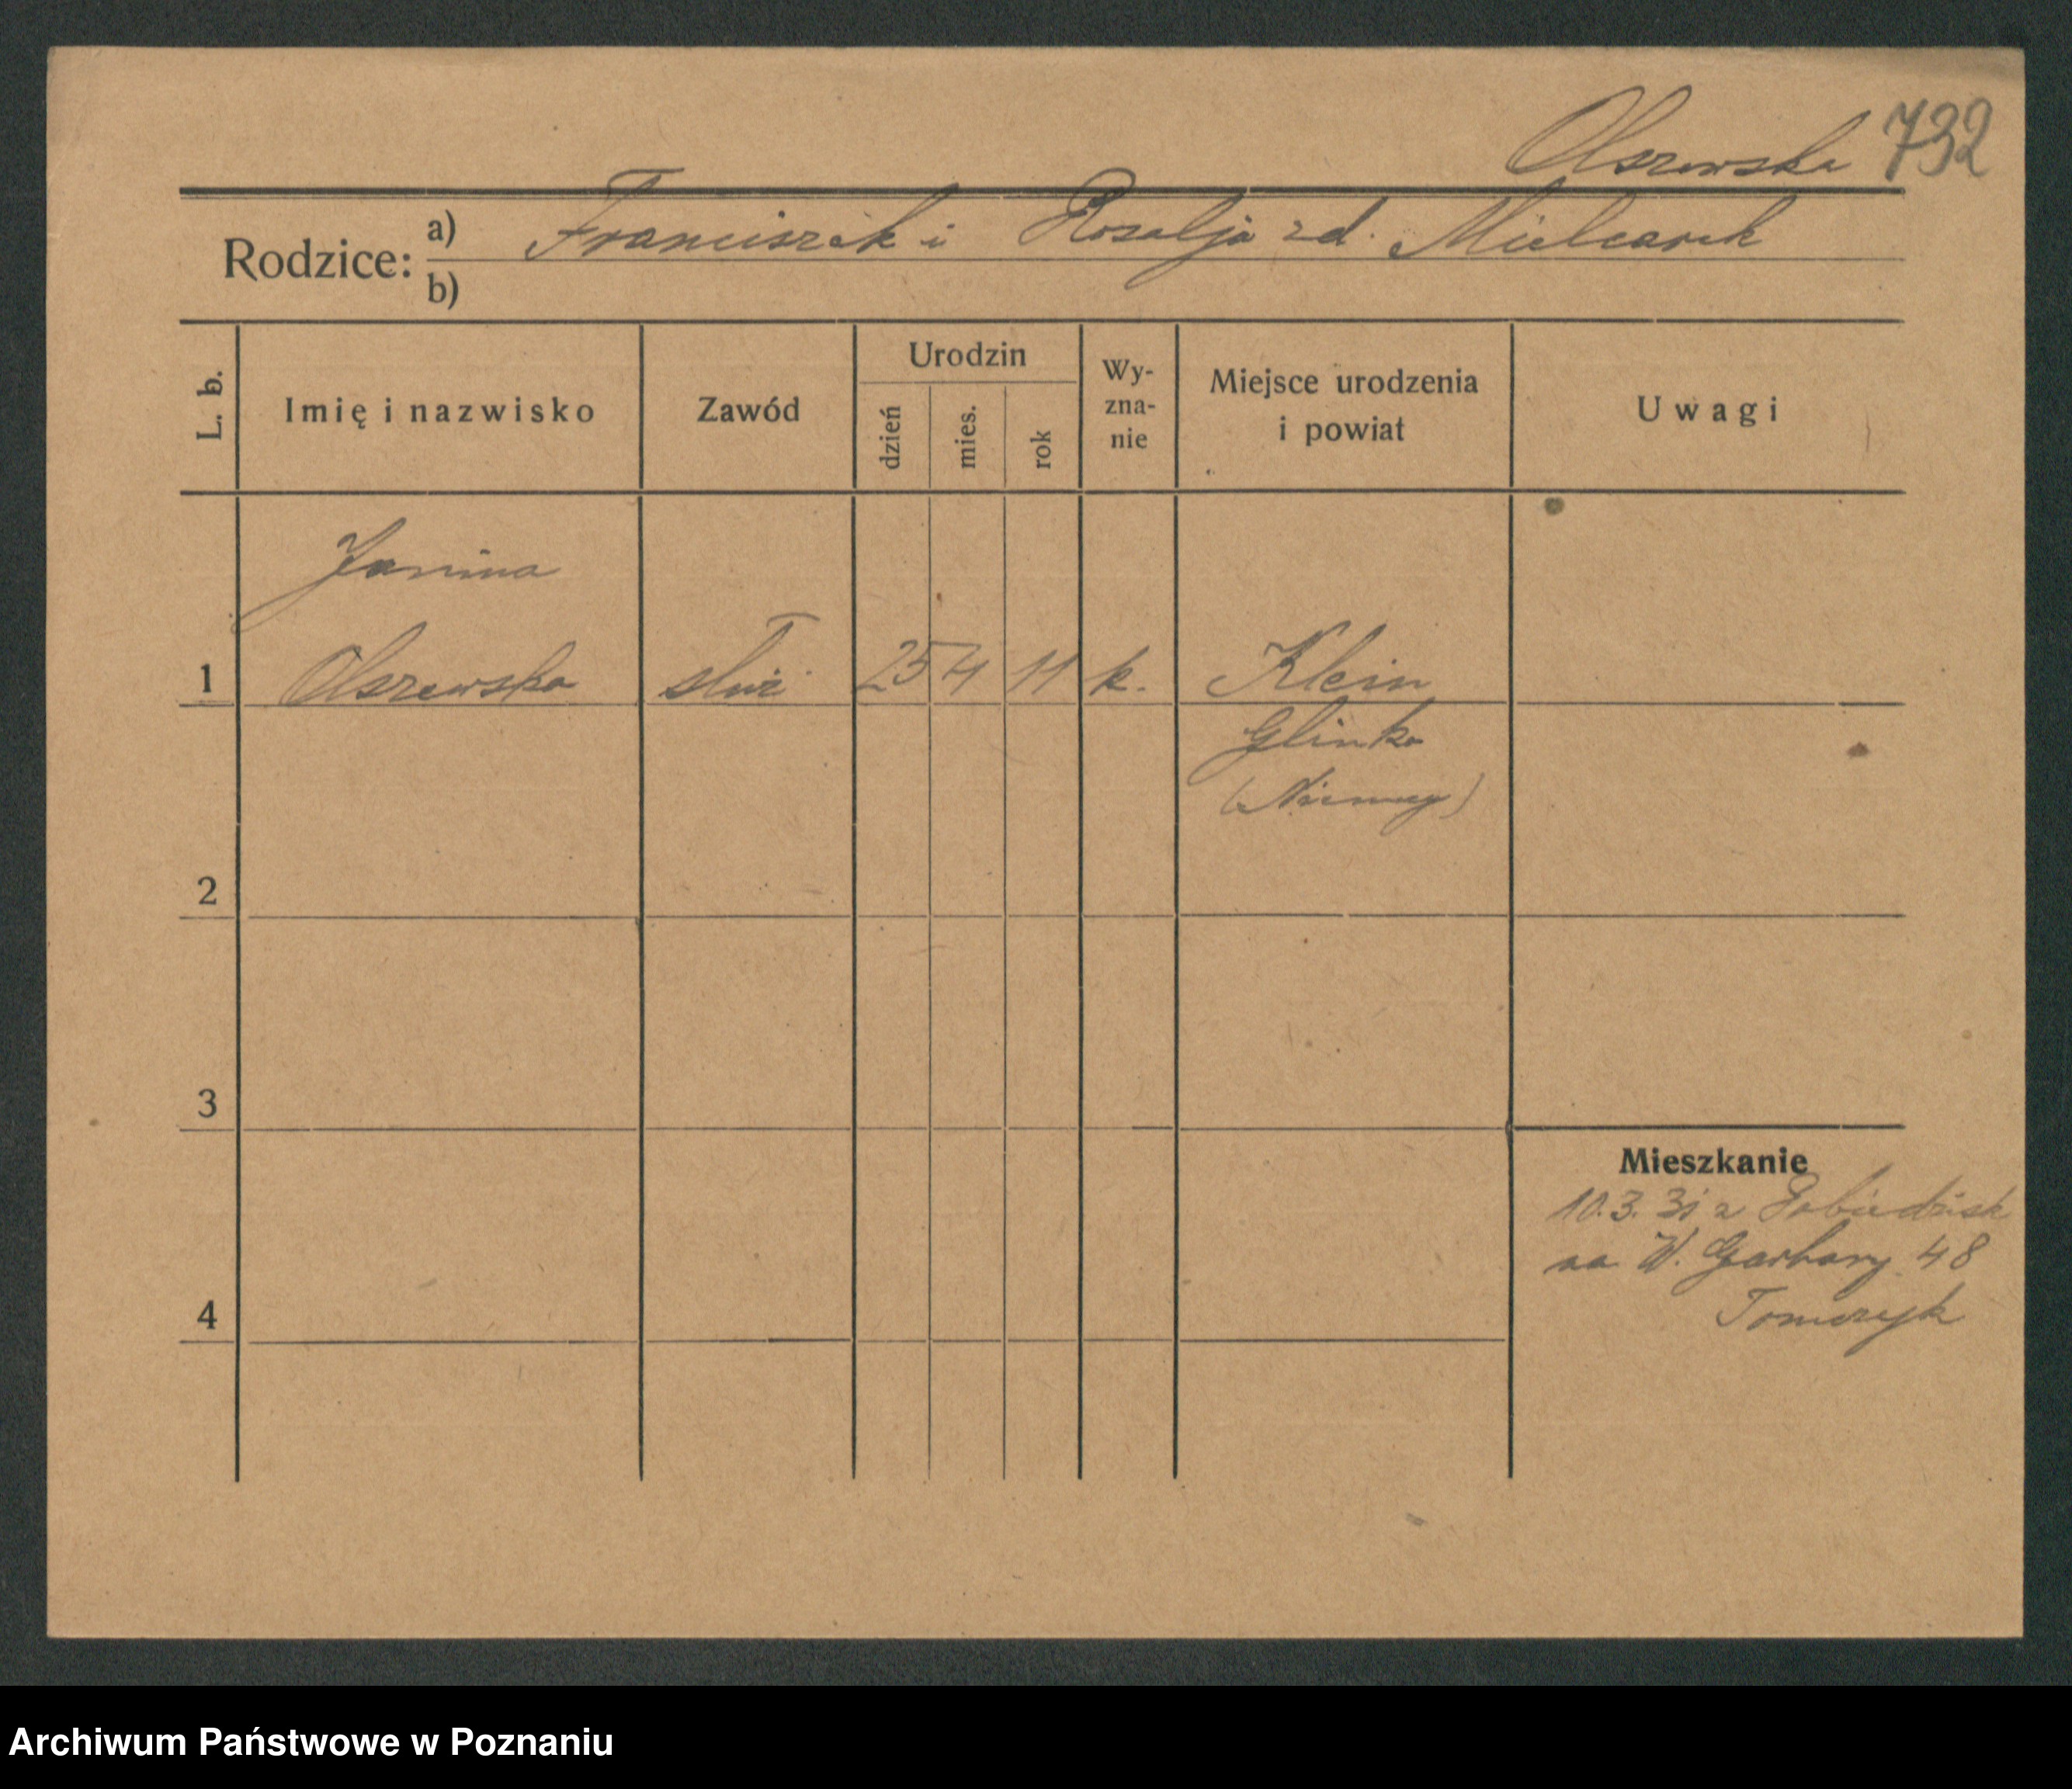 Olszewska 732
Rodzice: a) Franciszek i Rozalja zd. Mielcarek
b)
L. b.
Imię i nazwisko
Zawód
Urodzin
dzień
mies.
rok
Wy-
zna-
nie
Miejsce urodzenia
i powiat
Uwagi
Janina
1 Olszewska służ. 25 4 11 k. Klein
Glinka
(Niemcy)
2
3
4
Mieszkanie
10.3.31 z Pobiedzisk
na W. Garbary 48
Tomczyk
Archiwum Państwowe w Poznaniu